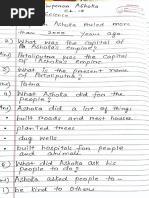 Emperor Ashoka
CL-III
Science
Ashoka ruled more
than 2000 years ago.
2) What was the capital of
Ashoka's empire?
Ans) Pataliputra was the capital of
Ashoka's empire.
3) What is the present name
of Pataliputra?
Ans) Patna
4) What did Ashoka did for the
people?
Ans) Ashoka did a lot of things
• built roads and rest houses
• planted trees
• dug wells
• built hospitals for people
and animals.
5) What did Ashoka ask his
people to -
Ans) Ashoka asked people to -
1) be kind to others